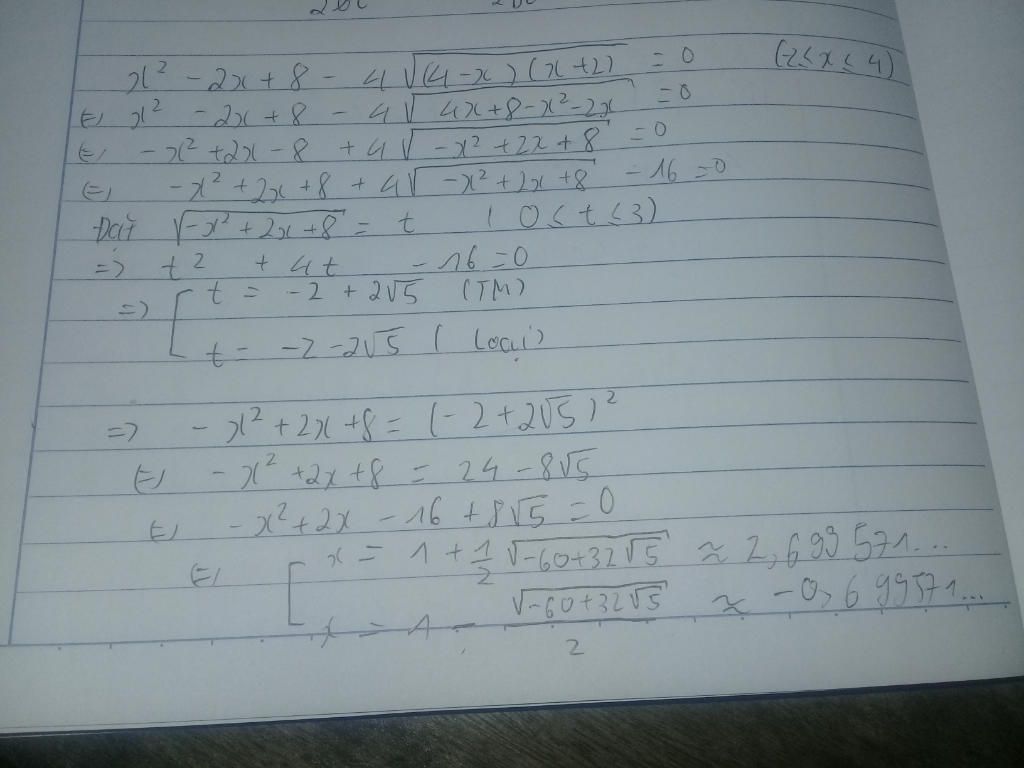 x² - 2x + 8 - 4√((4-x)(x+2)) = 0 (-2≤x≤4)
⇔ x² - 2x + 8 - 4√(4x+8-x²-2x) = 0
⇔ -x² + 2x - 8 + 4√(-x² + 2x + 8) = 0
⇔ -x² + 2x + 8 + 4√(-x² + 2x + 8) - 16 = 0
Đặt √(-x² + 2x + 8) = t (0 ≤ t ≤ 3)
=> t² + 4t - 16 = 0
=> [ t = -2 + 2√5 (TM)
t = -2 - 2√5 (Loại)
=> -x² + 2x + 8 = (-2 + 2√5)²
⇔ -x² + 2x + 8 = 24 - 8√5
⇔ -x² + 2x - 16 + 8√5 = 0
⇔ [ x = 1 + 1/2 √(-60+32√5) ≈ 2,699571...
x = 1 - √(-60+32√5)/2 ≈ -0,699571...